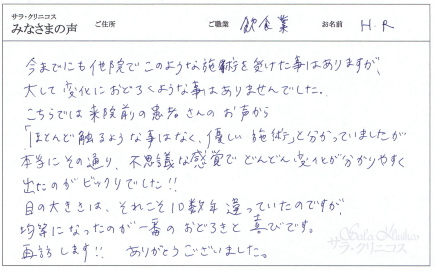 サラ・クリニコス
みなさまの声
ご住所
ご職業 飲食業
お名前 H.R
今までにも他院でこのような施術を受けた事はありますが、
大して変化におどろくような事はありませんでした。
こちらでは来院前の患者さんのお声から
「ほとんど触るような事はなく、優しい施術」と分かっていましたが
本当にその通り、不思議な感覚でどんどん変化が分かりやすく
出たのがビックリでした!!
目の大きさは、それこそ10数年違っていたのですが、
均等になったのが一番のおどろきと喜びです。
再訪します!! ありがとうございました。
サラ・クリニコス